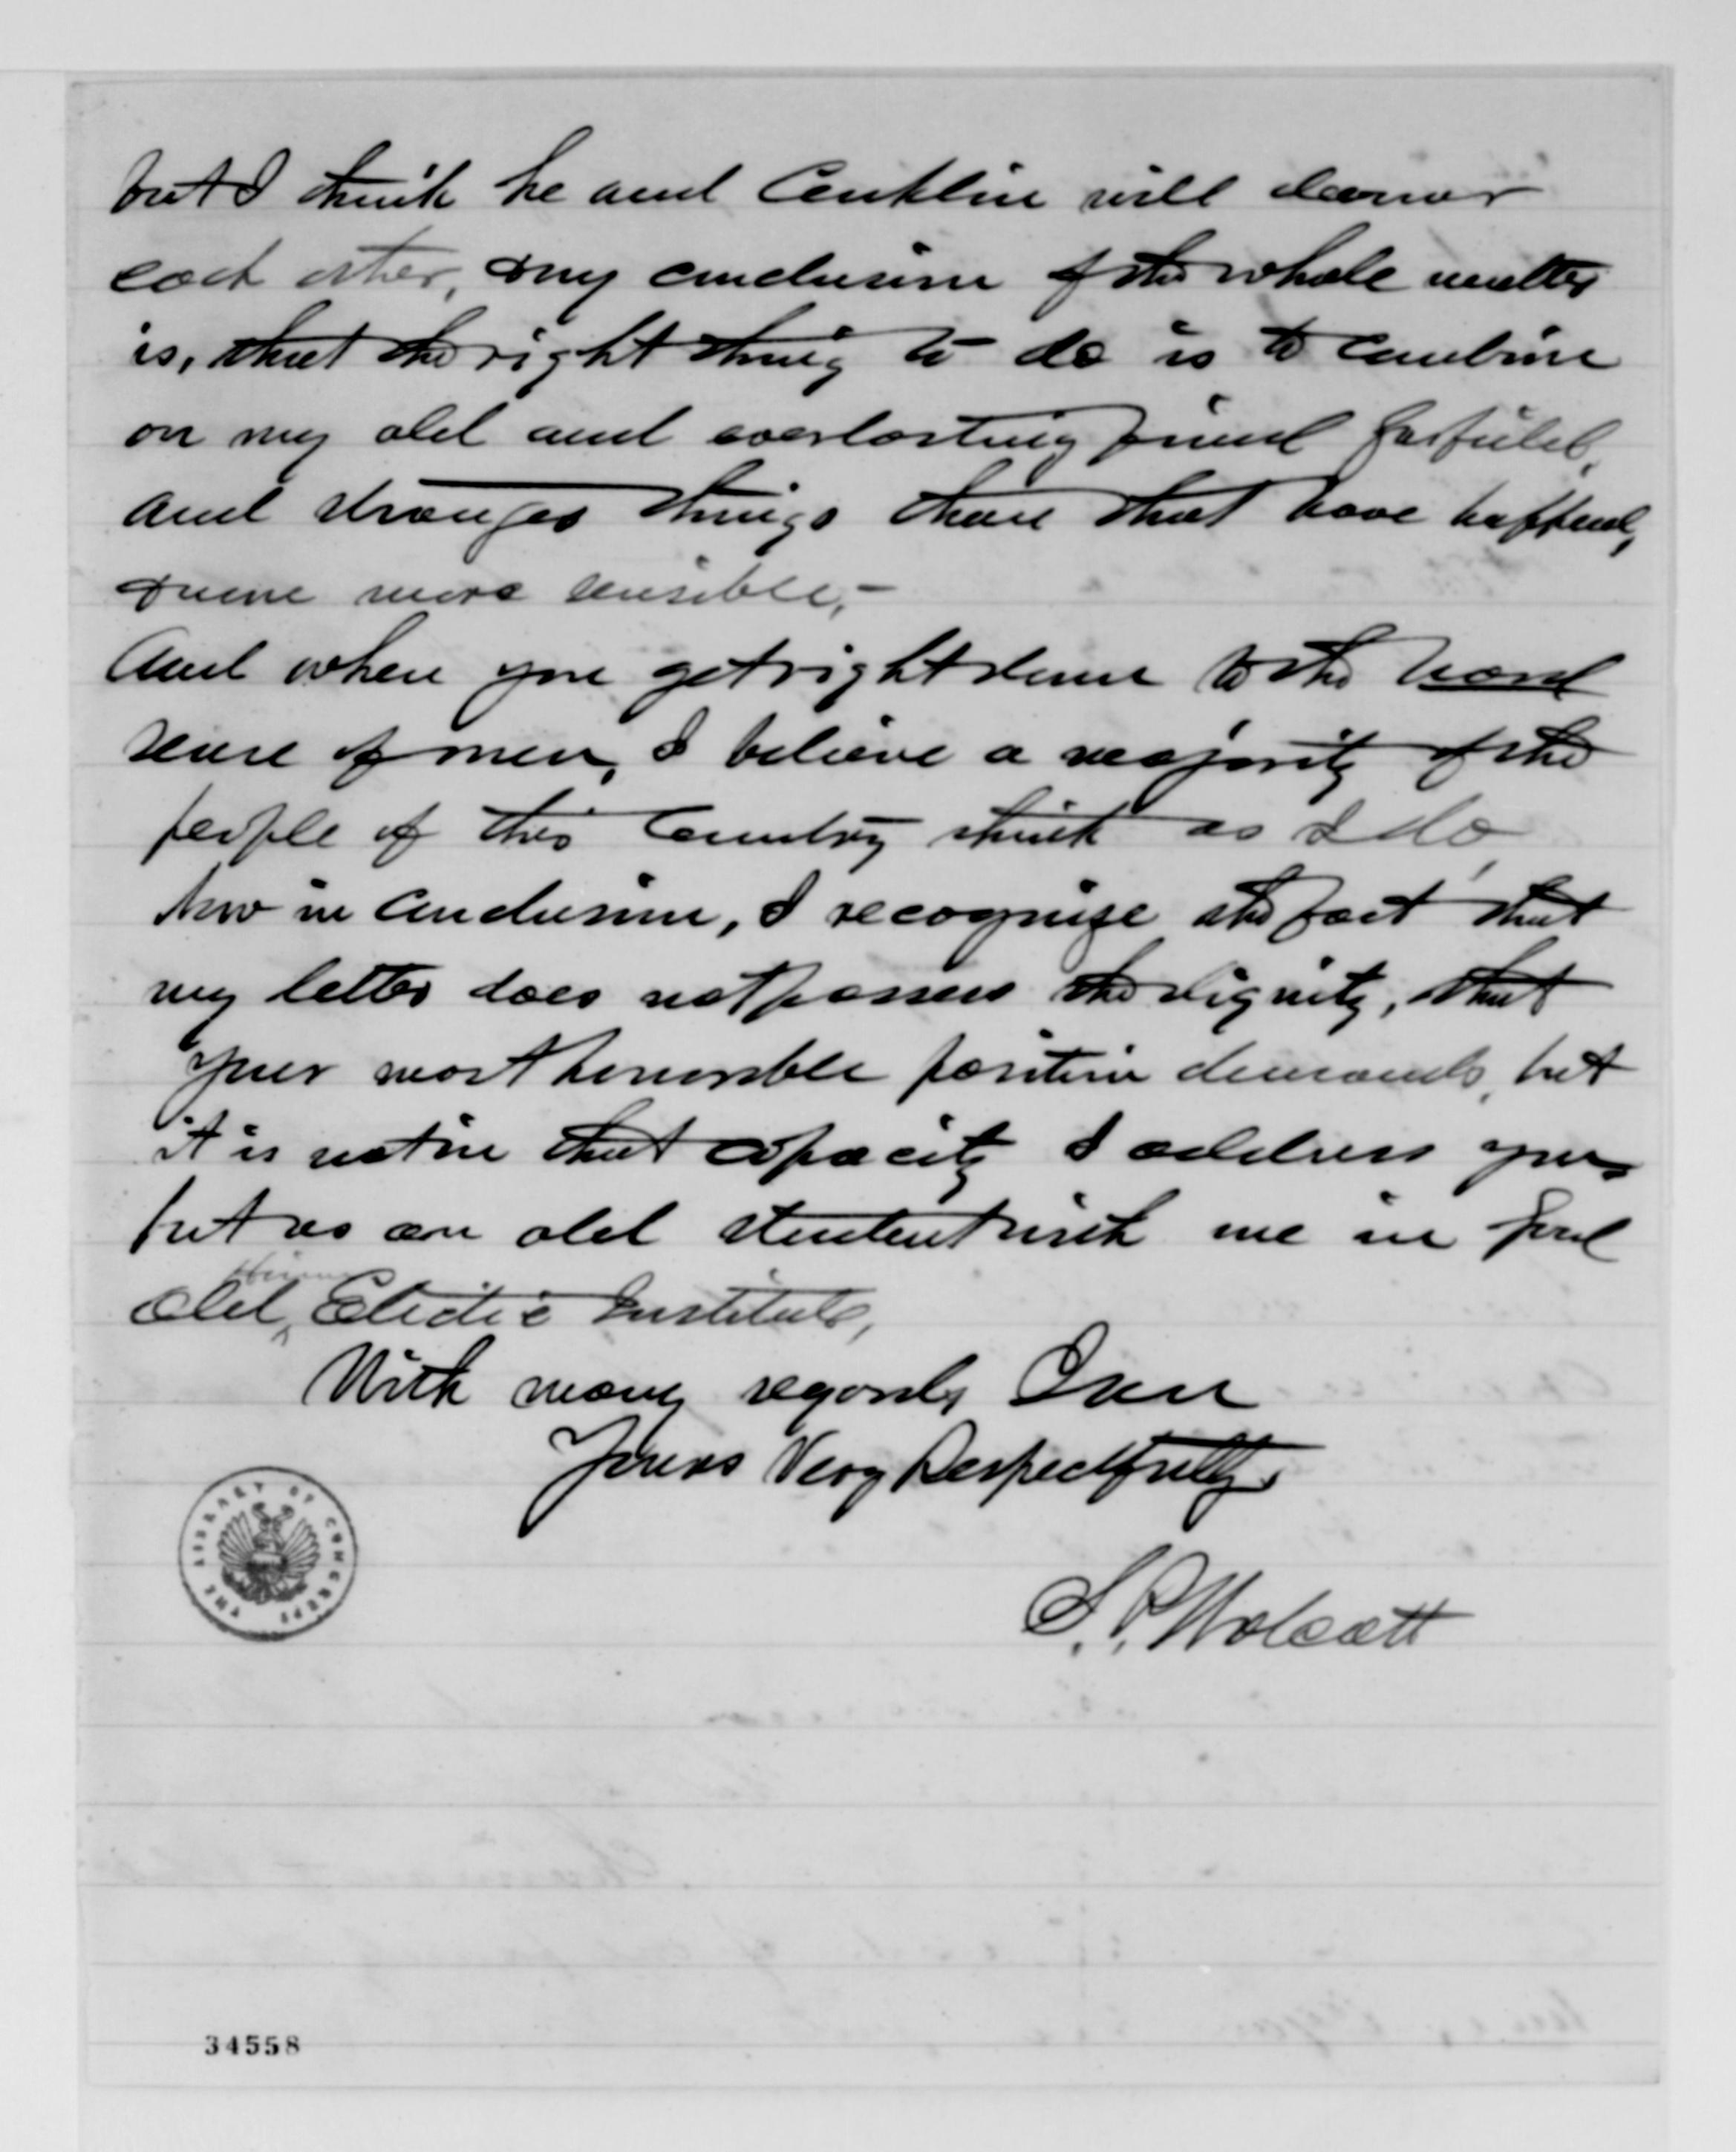 but I think he and Conklin will
each other, & my conclusion of the whole matter
is, that the right thing to do is to combine
on my old and everlasting friend Garfield,
and stranger things than that have happend,
& none more sensible,-
And when you get right down to the hard
sense of men, I believe a majority of the
people of this Country think as I do
Now in conclusion, I recognize the fact that
my letter does not possess the dignity, that
your most honorable position demands, but
it is not in that capacity I address you
but as an old student with me in good
old, Hiram Eclectic Institute,
With many regards I am
Yours Very Respectfully
S. P. Wolcott
THE LIBRARY OF CONGRESS
34558